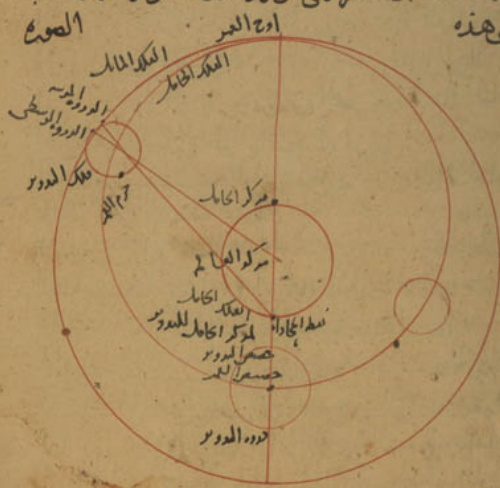 هذه
الصورة
اوج القمر
الفلك المائل
الفلك الحامل
الذروة المرئية
الذروة الوسطى
فلك التدوير
جرم القمر
مركز الحامل
مركز العالم
الفلك الحامل
نقطة المحاذاة
لمركز الحامل للتدوير
حضيض التدوير
حضيض القمر
ذروة التدوير